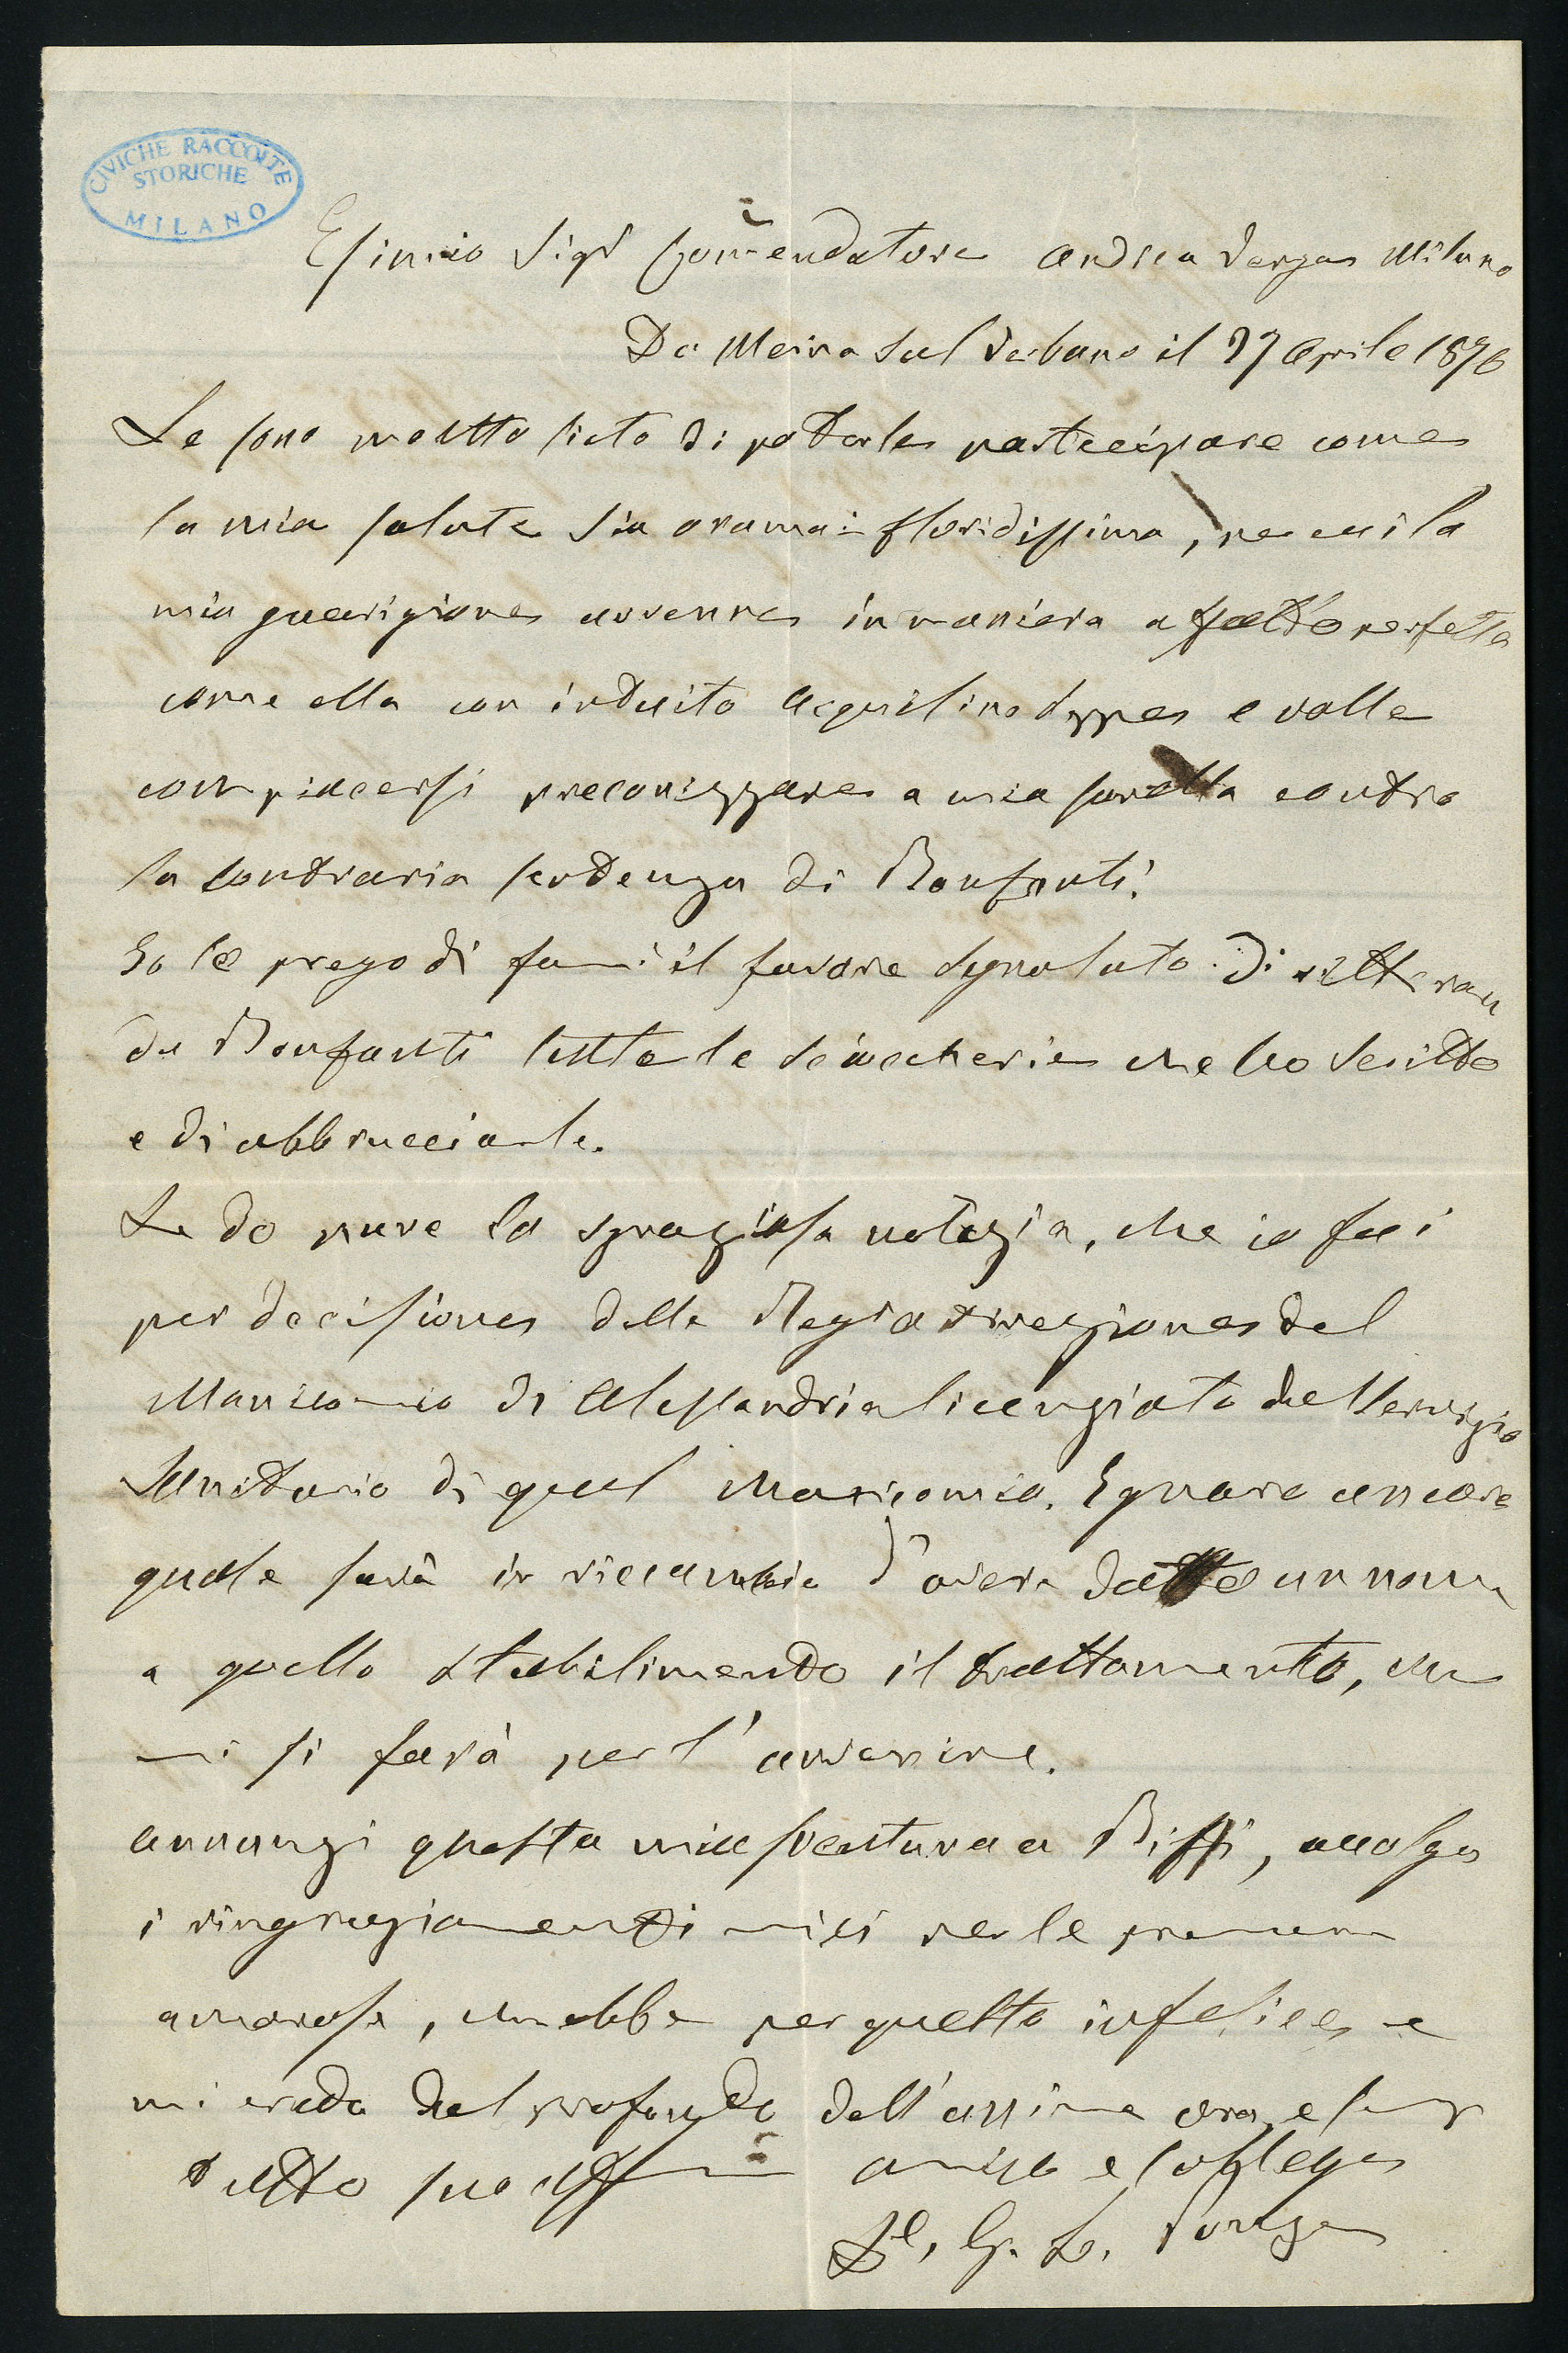 CIVICHE RACCOLTE
STORICHE
MILANO
Esimio Sigr Commendatore Andrea Verga Milano
Da Meina sul Verbano il 27 Aprile 1876
Le sono moltto lieto di poterle partecipare come
la mia salute sia oramai floridissima, per cui la
mia guarigione avvenne in maniera affatto perfetta
come ella con intuito acquilino seppe e volle
compiacersi preconizzare a mia sorella contro
la contraria sentenza di Bonfanti.
Io le prego di farmi il favore segnalato di
da Bonfanti tutte le sciaccherie che ho scritto
e di abbrucciarle.
Le do pure la spiaziosa notizia, che io fui
per decisione della Regia direzione del
Manicomio di Alessandria licenziato dal servizio
Sanitario di quel Manicomio. Ignaro ancora
quale sarà in riccambio d'avere datto un nome
a quello stabilimento il trattamento, che
mi si farà per l'avvenire.
annunzi questa mia sventura a Biffi, accolga
i ringraziamenti miei per le premure
amorose, che ebbe per questo infelice e
mi creda dal profondo dell'annima ora e semp
tutto suo aff amico e collega
Dr. G. L. Ponza